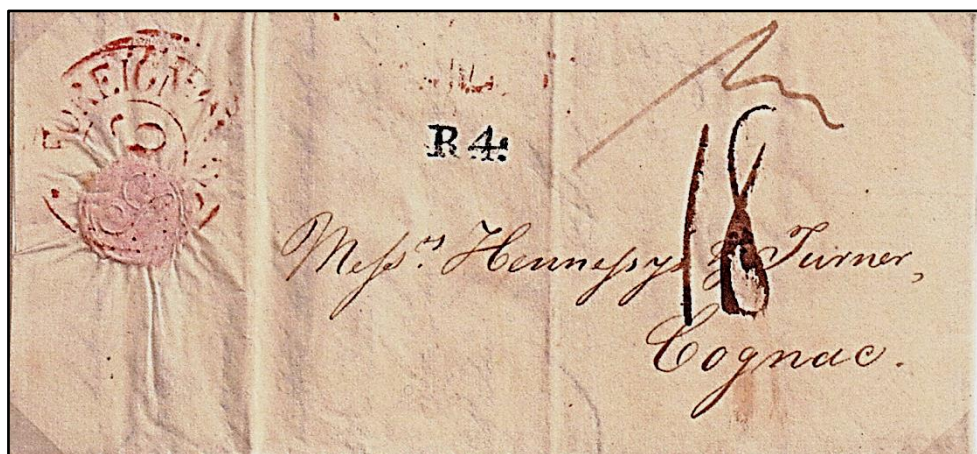 FOREIGN
R 4:
18
Meſs.rs Henneſsy & Turner,
Cognac.